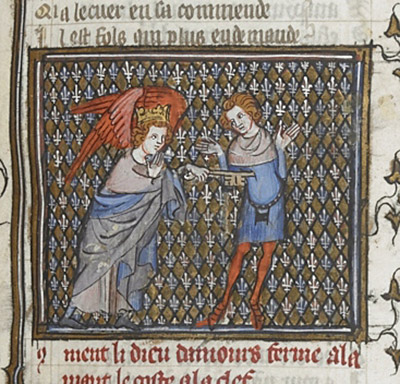 Qia lecuer en sa commende
Il est fols qui plus en demande
ꝯment li dieu damours ferme ala
mant le coste ala clef